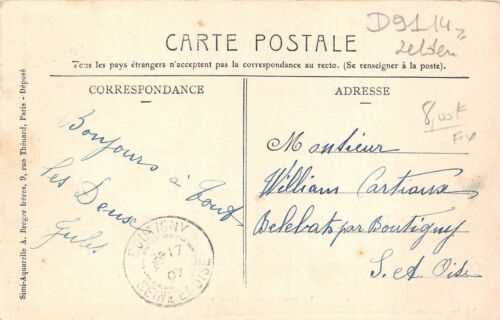 D9114
CARTE POSTALE
Tous les pays étrangers n'acceptent pas la correspondance au recto. (Se renseigner à la poste).
CORRESPONDANCE
ADRESSE
Simi-Aquarelle A. Breger frères, 9, rue Thénard, Paris - Déposé
Bonjours à tout
Les Deux
Jules
BOUTIGNY
17
07
SEINE ET OISE
Monsieur
William Cartiaux
Belebat par Boutigny
S. et Oise